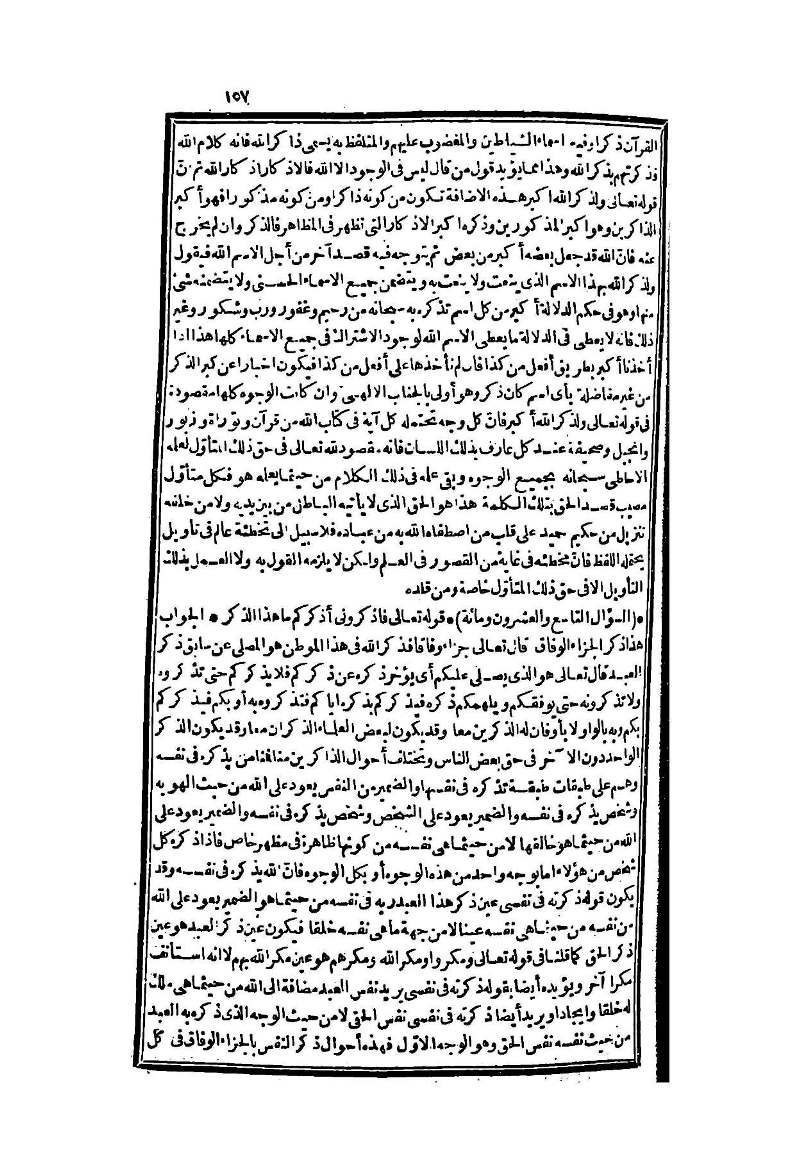 ١٥٧
القرآن ذكرا وفيه أسماء الشياطين والمغضوب عليهم والمتلفظ به يسمى ذاكر الله فانه كلام الله
فذكرتهم بذكر الله وهذا مما يؤيد قول من قال ليس فى الوجود الا الله فالاذكار اذكار الله ثم ان
قوله تعالى ولذكر الله اكبر هذه الاضافة تكون من كونه ذاكرا ومن كونه مذكورا فهو أكبر
الذاكرين وهو اكبر المذكورين وذكره اكبر الاذكار التى تظهر فى المظاهر فالذكر وان لم يخرج
عنه فانّ الله قد جعل بعضه أكبر من بعض ثم يتوجه فيه قصد آخر من أجل الاسم الله فيقول
ولذكر الله بهذا الاسم الذى ينعت ولا ينعت به ويتضمن جميع الاسماء الحسنى ولا يتضمنه شئ
منها وهو فى حكم الدلالة أكبر من كل اسم تذكره به سبحانه من رحيم وغفور ورب وشكور وغير
ذلك فانه لا يعطى فى الدلالة ما يعطى الاسم الله لوجود الاشتراك فى جميع الاسماء كلها هذا اذا
أخذنا أكبر بطريق أفعل من كذا فان لم نأخذها على أفعل من كذا فيكون اخبارا عن كبر الذكر
من غير مفاضلة بأى اسم كان ذكر وهو أولى بالجناب الالهى وان كانت الوجوه كلها مقصودة
فى قوله تعالى ولذكر الله أكبر فانّ كل وجه تحتمله كل آية فى كتاب الله من قرآن وتوراة وزبور
وانجيل وصحيفة عند كل عارف بذلك اللسان فانه مقصود لله تعالى فى حق ذلك المتأوّل لعلمه
الاحاطى سبحانه بجميع الوجوه وبقى عله فى ذلك الكلام من حيث ما يعلمه هو فكل متأوّل
مصيب قصد الحق بتلك الكلمة هذا هو الحق الذى لا يأتيه الباطل من بين يديه ولا من خلفه
تنزيل من حكيم حميد على قلب من اصطفاه الله به من عباده فلا سبيل الى تخطئة عالم فى تأويل
يحتمله اللفظ فانّ مخطئه فى غاية من القصور فى العلم ولكن لا يلزمه القول به ولا العمل بذلك
التأويل الا فى حق ذلك المتأوّل خاصة ومن قلده
(السؤال التاسع والعشرون ومائة) * قوله تعالى فاذكرونى أذكركم ما هذا الذكر * الجواب
هذا ذكر الجزاء الوفاق قال تعالى جزاء وفاقا فذكر الله فى هذا الموطن هو المصلى عن سابق ذكر
العبد قال تعالى هو الذى يصلى عليكم أى يؤخر ذكره عن ذكركم فلا يذكركم حتى تذكروه
ولا تذكرونه حتى يوفقكم ويلهمكم ذكره فيذكركم بذكره اياكم فتذكروه به أو بكم فيذكركم
بكم وبه بالواو لا بأو فان له الذكرين معا وقد يكون لبعض العلماء الذكران معا وقد يكون الذكر
الواحد دون الآخر فى حق بعض الناس وتختلف أحوال الذاكرين منا فمنا من يذكره فى نفسه
وهم على طبقات طبقة تذكره فى نفسها والضمير من النفس يعود على الله من حيث الهو به
وشخص يذكره فى نفسه والضمير يعود على الشخص وشخص يذكره فى نفسه والضمير يعود على
الله من حيث ما هو خالقها لا من حيث ما هى نفسه من كونها ظاهرة فى مظهر خاص فاذا ذكره كل
شخص من هؤلاء اما بوجه واحد من هذه الوجوه أو بكل الوجوه فانّ الله يذكره فى نفسه وقد
يكون قوله ذكرته فى نفسى عين ذكر هذا العبد ربه فى نفسه من حيث ما هو الضمير يعود على الله
من نفسه من حيث ما هى نفسه عينا لا من جهة ما هى نفسه خلقا فيكون عين ذكر العبد هو عين
ذكر الحق كما قلنا فى قوله تعالى ومكروا ومكر الله ومكرهم هو عين مكر الله بهم لا انه استأنف
مكرا آخر ويؤيده أيضا بقوله ذكرته فى نفسى يريد نفس العبد مضافة الى الله من حيث ما هى ملك
له خلقا وايجادا ويريد أيضا ذكرته فى نفسى نفس الحق لا من حيث الوجه الذى ذكره به العبد
من حيث نفسه نفس الحق وهو الوجه الاوّل فهذه أحوال ذكر النفس بالجزاء الوفاق فى كل